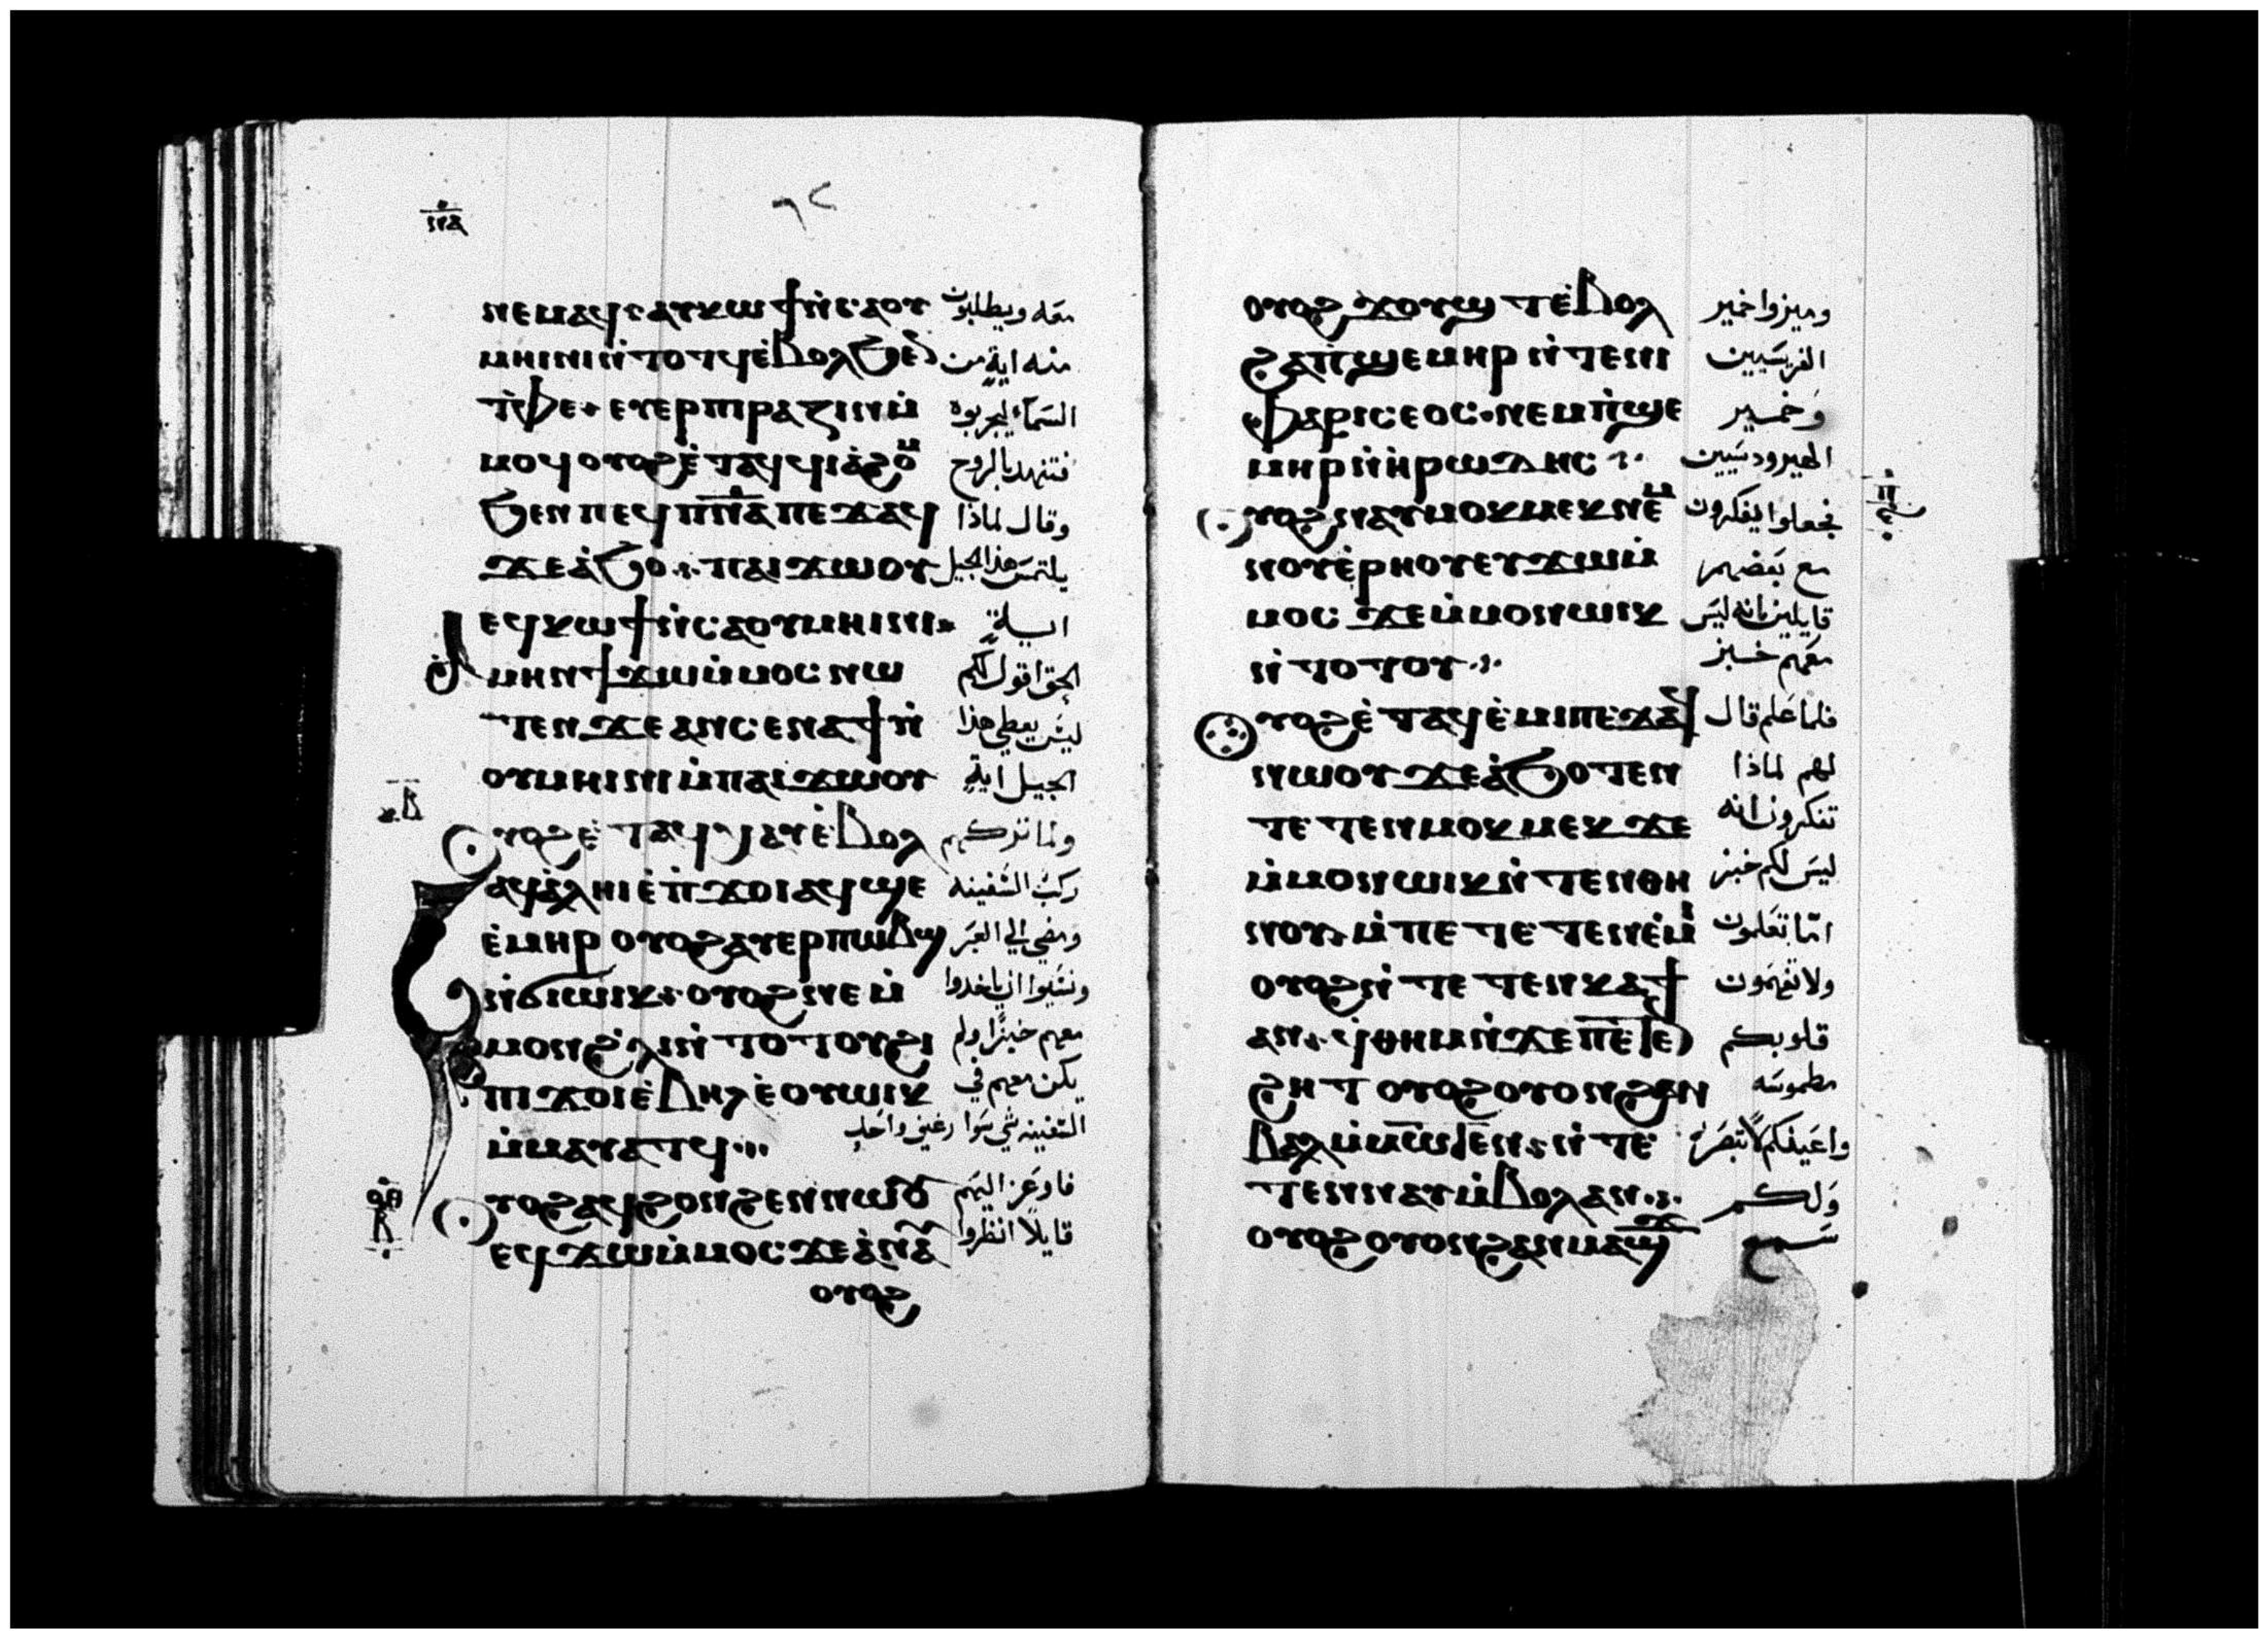 ⲛⲉⲙⲁϥ ⲉⲩⲕⲱϯ ⲛ̀ⲥⲁⲟⲩ معه ويطلبون
ⲙⲏⲓⲛⲓ ⲛ̀ⲧⲟⲧϥ ⲉ̀ⲃⲟⲗ ϧⲉⲛ منه اية من
ⲧ̀ⲫⲉ ⲉⲩⲉⲣⲡⲓⲣⲁⲍⲓⲛ ⲙ̀ السمآء ليجربوه
ⲙⲟϥ ⲟⲩⲟϩ ⲉ̀ⲧⲁϥϥⲓⲁ̀ϩⲟⲙ فتنهد بالروح
ϧⲉⲛ ⲡⲉϥⲡ̅ⲛ̅ⲁ̅ ⲡⲉϫⲁϥ وقال لماذا
ϫⲉ ⲁ̀ϧⲟ ⲡⲁⲓϫⲱⲟⲩ يلتمس هذا الجيل
ⲉϥⲕⲱϯ ⲛ̀ⲥⲁⲟⲩⲙⲏⲓⲛⲓ اية
ⲁⲙⲏⲛ ϯϫⲱ ⲙ̀ⲙⲟⲥ ⲛⲱ الحق اقول لكم
ⲧⲉⲛ ϫⲉ ⲁⲛ ⲥⲉⲛⲁϯ ⲛ̀ ليس يعطي هذا
ⲟⲩⲙⲏⲓⲛⲓ ⲙ̀ⲡⲁⲓϫⲱⲟⲩ الجيل اية
ⲟⲩⲟϩ ⲉ̀ⲧⲁϥⲭⲁⲩ ⲉ̀ⲃⲟⲗ ولما تركهم
ⲁϥⲁ̀ⲗⲏⲓ ⲉ̀ⲡ̀ϫⲟⲓ ⲁϥϣⲉ ركب السفينه
ⲉ̀ⲙⲏⲣ ⲟⲩⲟϩ ⲁⲩⲉⲣⲡⲱⲃϣ ومضي الي العبر
ⲛ̀ϭⲓⲱⲓⲕ ⲟⲩⲟϩ ⲛⲉ ⲙ̀ ونسيوا ان ياخدوا
ⲙⲟⲛ ϩ̀ⲗⲓ ⲛ̀ⲧⲟⲧⲟⲩ ϩⲓ معهم خبزًا ولم
ⲡⲓϫⲟⲓ ⲉ̀ⲃⲏⲗ ⲉ̀ⲟⲩⲱⲓⲕ يكن معهم في
ⲙ̀ⲙⲁⲩⲁⲧϥ السفينه شي سوا رغيف واحد
ⲟⲩⲟϩ ⲁϥϩⲟⲛϩⲉⲛ ⲛⲱⲟⲩ فاوعز اليهم
ⲉϥϫⲱ ⲙ̀ⲙⲟⲥ ϫⲉ ⲁ̀ⲛⲁⲩ قايلاً انظروا
ⲟⲩⲟϩ
ⲟⲩⲟϩ ϫⲟⲩϣⲧ ⲉ̀ⲃⲟⲗ وميزوا خمير
ϩⲁ ⲡ̀ϣⲉⲙⲏⲣ ⲛ̀ⲧⲉ ⲛⲓ الفريسيين
ⲫⲁⲣⲓⲥⲉⲟⲥ ⲛⲉⲙ ⲡ̀ϣⲉ وخمير
ⲙⲏⲣ ⲛ̀ⲏ̀ⲣⲱⲇⲏⲥ الهيرودسيين
ⲟⲩⲟϩ ⲛⲁⲩⲙⲟⲕⲙⲉⲕ ⲛⲉⲙ فجعلوا يفكرون
ⲛⲟⲩⲉ̀ⲣⲏⲟⲩ ⲉⲩϫⲱ ⲙ̀ مع بعضهم
ⲙⲟⲥ ϫⲉ ⲙ̀ⲙⲟⲛ ⲱⲓⲕ قايلين بانه ليس
ⲛ̀ⲧⲟⲧⲟⲩ معهم خبز
ⲟⲩⲟϩ ⲉ̀ⲧⲁϥⲉ̀ⲙⲓ ⲡⲉϫⲁϥ فلما علم قال
ⲛⲱⲟⲩ ϫⲉ ⲁ̀ϧⲟⲧⲉⲛ لهم لماذا
ⲧⲉⲧⲉⲛⲙⲟⲕⲙⲉⲕ ϫⲉ تتفكرون انه
ⲙ̀ⲙⲟⲛ ⲱⲓⲕ ⲛ̀ⲧⲉⲛⲑⲏ ليس لكم خبز
ⲛⲟⲩ ⲙ̀ⲡⲉⲧⲉⲧⲉⲛⲉ̀ⲙⲓ اما تعلمون
ⲟⲩⲟϩ ⲛ̀ⲧⲉⲧⲉⲛⲕⲁϯ ولا تفهمون
ⲁⲛ ϥ̀ⲑⲏⲙ ⲛ̀ϫⲉ ⲡⲉⲧⲉⲛ قلوبكم
ϩⲏⲧ ⲟⲩⲟϩ ⲟⲩⲟⲛ ϩⲁⲛ مطموسه
ⲃⲁⲗ ⲙ̀ⲙⲱⲧⲉⲛ ⲛ̀ⲧⲉ واعينكم لا تبصر
ⲧⲉⲛⲛⲁⲩ ⲙ̀ⲃⲟⲗ ⲁⲛ ولكم
ⲟⲩⲟϩ ⲟⲩⲟⲛ ϩⲁⲛⲙⲁϣϫ سمع